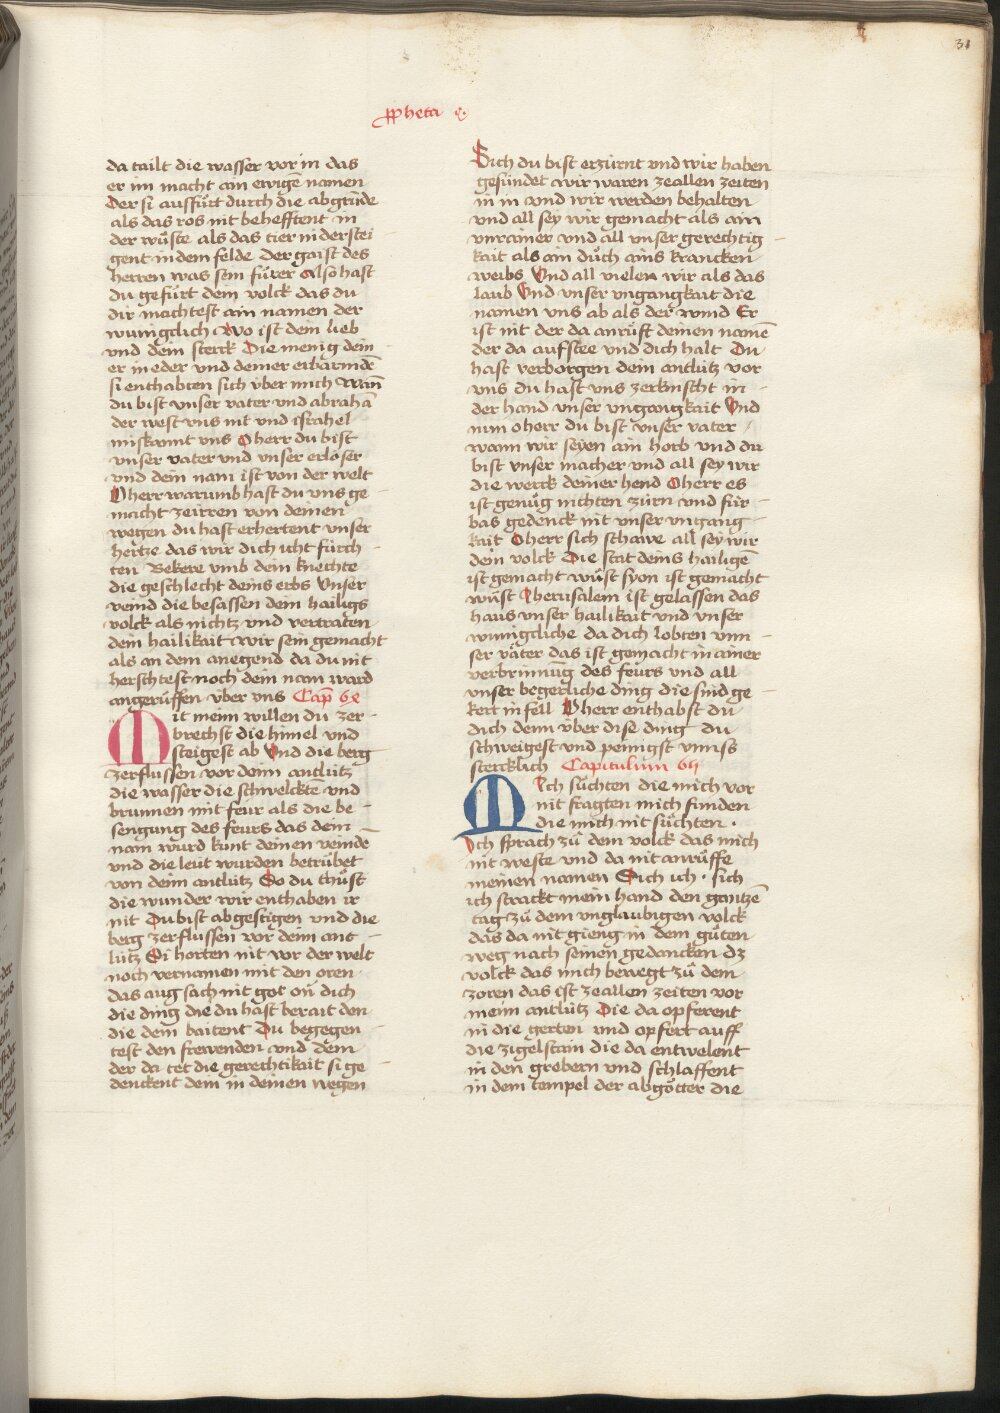 31
ppheta
da tailt die wasser vor in das
er im macht ain ewigē namen
Der si ausfůrt durch die abgründe
als das ros nit behefftent in
der wůste als das tier nider stei
gent in dem felde der gaist des
herren was sein fůrer Also hast
du gefůrt dein volck das du
dir machtest ain namen der
wunigclich Wo ist dein lieb
vnd dein sterck Die menig dein
er in eder vnd deiner erbarmde
si enthabten sich v̈ber mich Wañ
du bist vnser vater vnd abrahā
der west vns nit vnd israhel
miskannt vns O herr du bist
vnser vater vnd vnser erloser
vnd dein nam ist von der welt
O herr warumb hast du vns ge
macht zeirren von deinen
wegen du hast erhertent vnser
hertze das wir dich icht fürch
ten Bekere vmb dein knechte
die geschlecht deins erbs Vnser
veind die besassen dein hailigs
volck als nichtz vnd vertraten
dein hailikait Wir sein gemacht
als an dem anegend da du nit
herschtest noch dein nam ward
angerůffen v̈ber vns Cap̄ 64
Mit meim willen du zer
brechst die himel vnd
steigest ab Vnd die berg
zerflussen vor deim antlütz
die wasser die schwelckten vnd
brunnen mit feur als die be
sengung des feurs das dein
nam wurd kunt deinen veinde
vnd die leut wurden betrübet
von deim antlütz So du thůst
die wunder wir enthaben ir
nit Du bist abgestigen vnd die
berg zerflussen vor deim ant
lütz Si horten nit vor der welt
noch vernamen mit den oren
das aug sach nit got on̄ dich
die ding die du hast berait den
die dein baitent Du begegen
test den frewenden vnd dem
der da tet die gerechtikait si ge
denckent dein in deinen wegen
Sich du bist erzürnt vnd wir haben
gesündet wir waren zeallen zeiten
in in vnd wir werden behalten
vnd all sey wir gemacht als ain
vnrainer vnd all vnser gerechtig
kait als ain důch ains krancken
weibs Vnd all vielen wir als das
laub Vnd vnser vngangkait die
namen vns ab als der wind Er
ist nit der da anrůft deinen namē
der da aufstee vnd dich halt Du
hast verborgen dein antlütz vor
vns du hast vns zerknischt in
der hand vnser vngangkait Vnd
nun o herr du bist vnser vater
wann wir seyen ain horb vnd du
bist vnser macher vnd all sey wir
die werck deiner hend O herr es
ist genůg nichten zürn vnd für
bas gedenck nit vnser vngang
kait O herr sich schawe all sey wir
dein volck Die stat deins hailigē
ist gemacht wůst syon ist gemacht
wůst Iherusalem ist gelassen das
haus vnser hailikait vnd vnser
wunigcliche da dich lobten vnn
ser väter das ist gemacht in ainer
verbrinnūg des feurs vnd all
vnser begerliche ding die sind ge
kert in fell O herr enthabst du
dich denn v̈ber dise ding du
schweigest vnd peinigst vnnss
stercklich Capitulum 65
Mich sůchten die mich vor
nit fragten mich funden
die mich nit sůchten .
Ich sprach zů dem volck das mich
nit weste vnd da nit anrůffe
meinen namen Sich ich . sich
ich strackt mein hand den gantzē
tag zů dem vnglaubigen volck
das da nit gieng in dem gůten
weg nach seinen gedancken dz
volck das mich bewegt zů dem
zoren das ist zeallen zeiten vor
meim antlütz Die da opferent
in die gerten vnd opfert auff
die zigelstain die da entwelent
in den grebern vnd schlaffent
in dem tempel der abgötter die